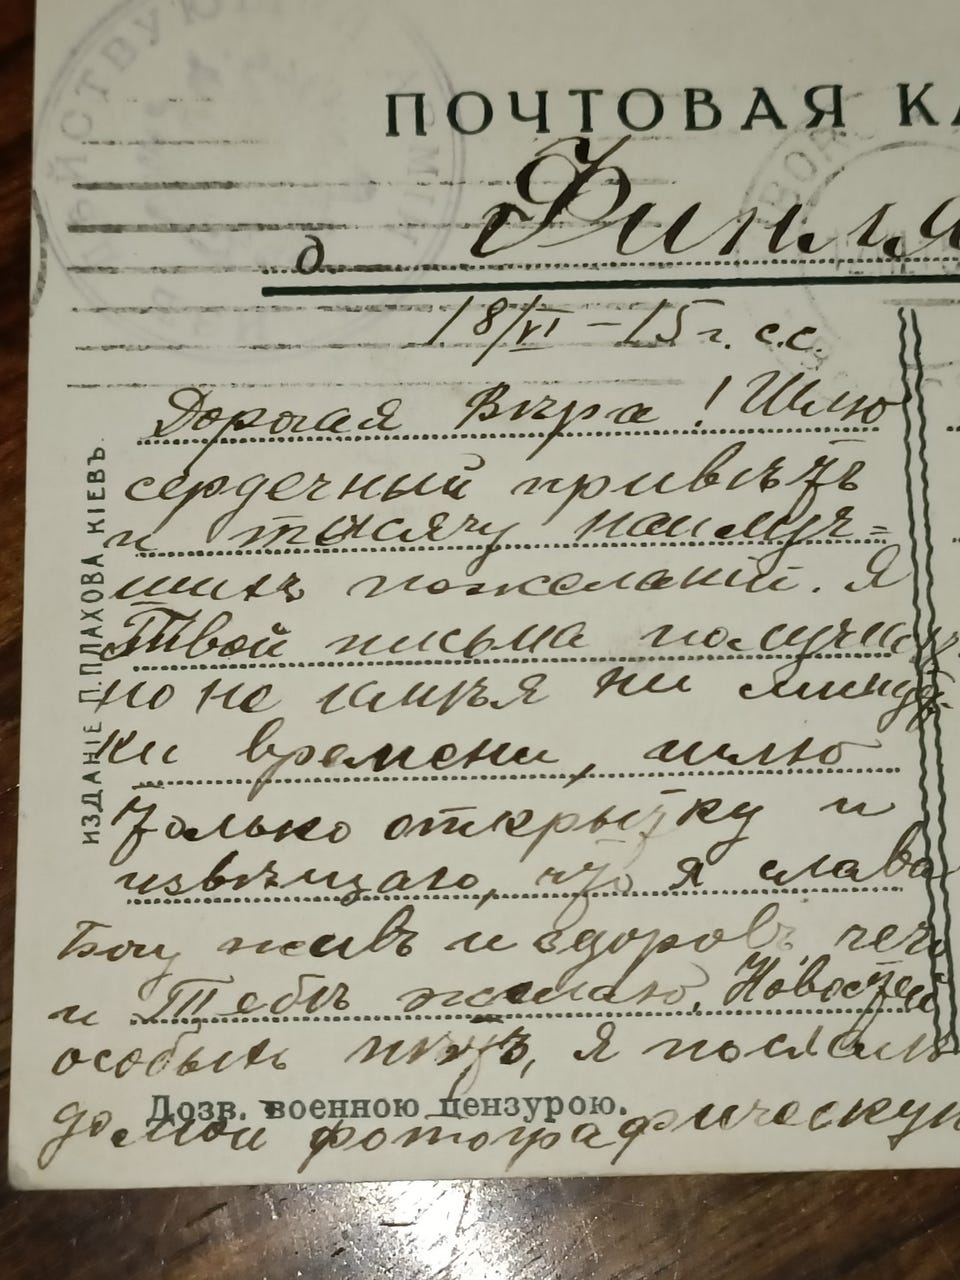 ДѢЙСТВУЮЩАЯ
ПОЧТОВАЯ КА
д. Финля
18/VI – 15 г. с.с.
Дорогая Вѣра! Шлю
сердечный привѣтъ
и тысячу наилуч=
шихъ пожеланій. Я
Твои письма получи
но не имѣя ни минут-
ки времени, шлю
только открытку и
извѣщаю, что я слава
Богу живъ и здоровъ чего
и Тебѣ желаю. Новостей
особыхъ нѣтъ, я послалъ
домой фотографическую
Дозв. военною цензурою.
ИЗДАНІЕ П.ПЛАХОВА КІЕВЪ.